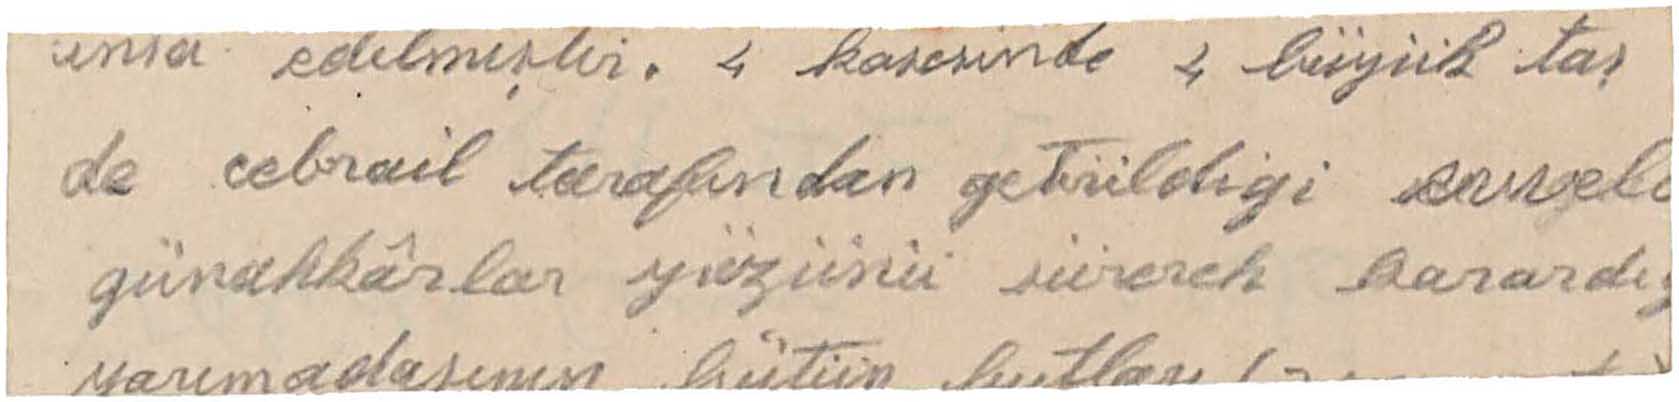 inşa edilmiştir. 4 kösesinde 4 büyük taş
de cebrail tarafından getirildiği evvela
günahkârlar yüzünü sürerek karardığ
yarımadasının bütün putları